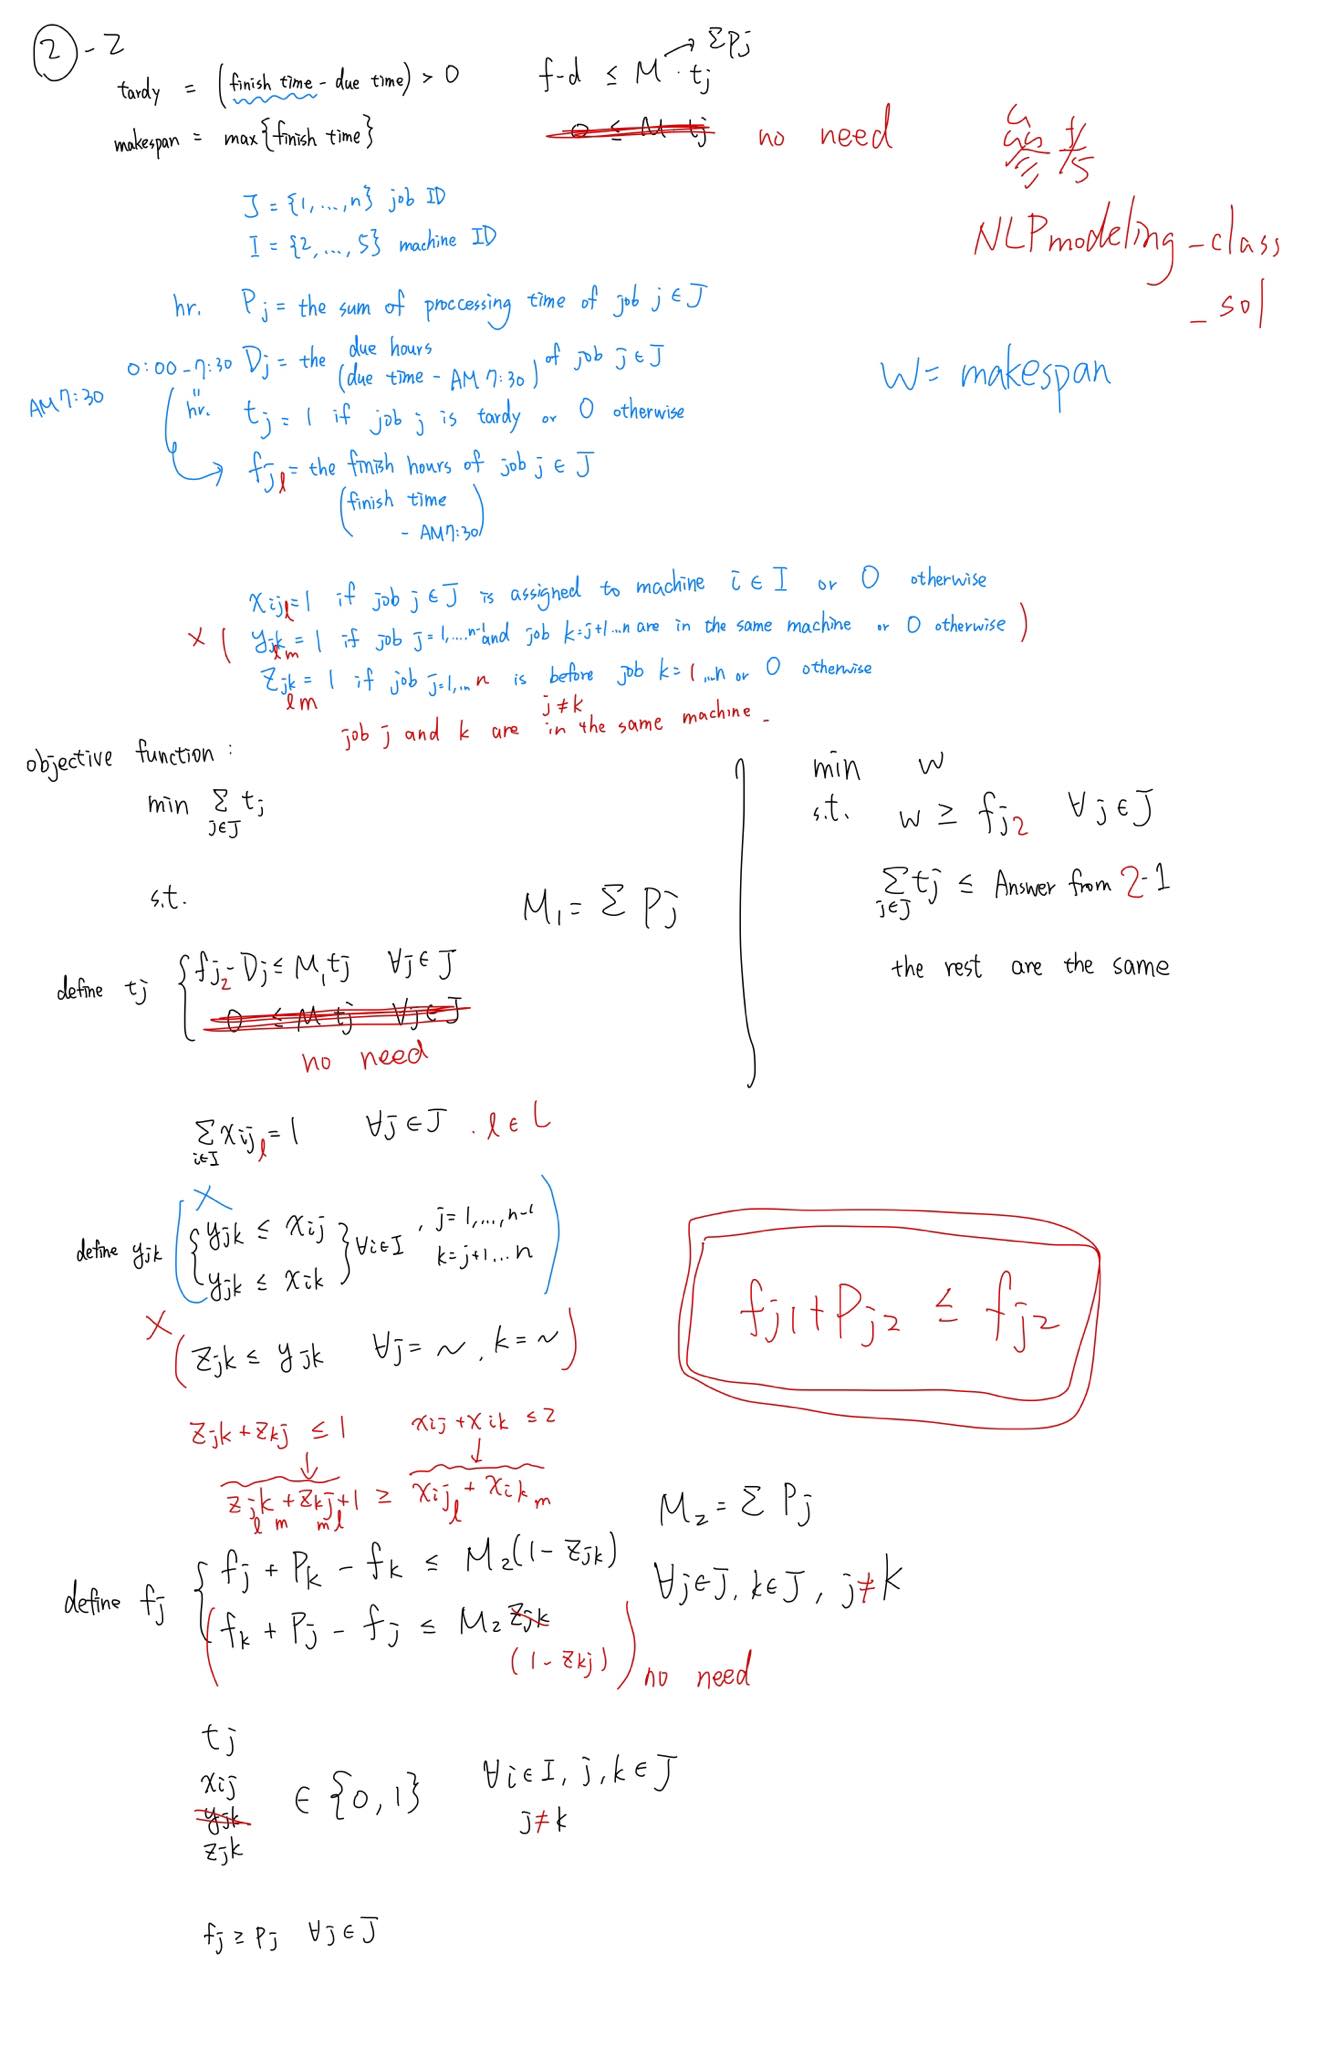 ② - 2
tardy = (finish time - due time) > 0
makespan = max{finish time}
f-d ≤ M · tj → ΣPj
0 ≤ M tj no need
參考
NLPmodeling_class
_sol
J = {1, ..., n} job ID
I = {2, ..., 5} machine ID
hr. Pj = the sum of proccessing time of job j ∈ J
0:00-7:30 Dj = the due hours (due time - AM 7:30) of job j ∈ J
W = makespan
AM 7:30
hr. tj = 1 if job j is tardy or 0 otherwise
fjl = the finish hours of job j ∈ J
(finish time
- AM 7:30)
xijl = 1 if job j ∈ J is assigned to machine i ∈ I or 0 otherwise
× ( yjk lm = 1 if job j = 1, ... n-1 and job k = j+1 ... n are in the same machine or 0 otherwise )
zjk lm = 1 if job j = 1, ... n is before job k = 1 ... n or 0 otherwise
j ≠ k
job j and k are in the same machine
objective function :
min Σ j∈J tj
s.t.
M1 = Σ Pj
define tj { fj2 - Dj ≤ M1 tj ∀j ∈ J
0 ≤ M tj ∀j ∈ J
no need
min w
s.t. w ≥ fj2 ∀j ∈ J
Σ j∈J tj ≤ Answer from 2-1
the rest are the same
Σ i∈I xijl = 1 ∀j ∈ J . l ∈ L
×
define yjk { yjk ≤ xij
yjk ≤ xik } ∀i ∈ I , j = 1, ..., n-1
k = j+1 ... n
× ( zjk ≤ yjk ∀j = ~ , k = ~ )
fj1 + Pj2 ≤ fj2
zjk + zkj ≤ 1 xij + xik ≤ 2
↓ ↓
zjk lm + zkj ml + 1 ≥ xijl + xikm
M2 = Σ Pj
define fj { fj + Pk - fk ≤ M2(1 - zjk) ∀j ∈ J, k ∈ J, j ≠ k
( fk + Pj - fj ≤ M2 zjk
(1 - zkj) ) no need
tj
xij
yjk
zjk
∈ {0, 1} ∀i ∈ I, j, k ∈ J
j ≠ k
fj ≥ Pj ∀j ∈ J